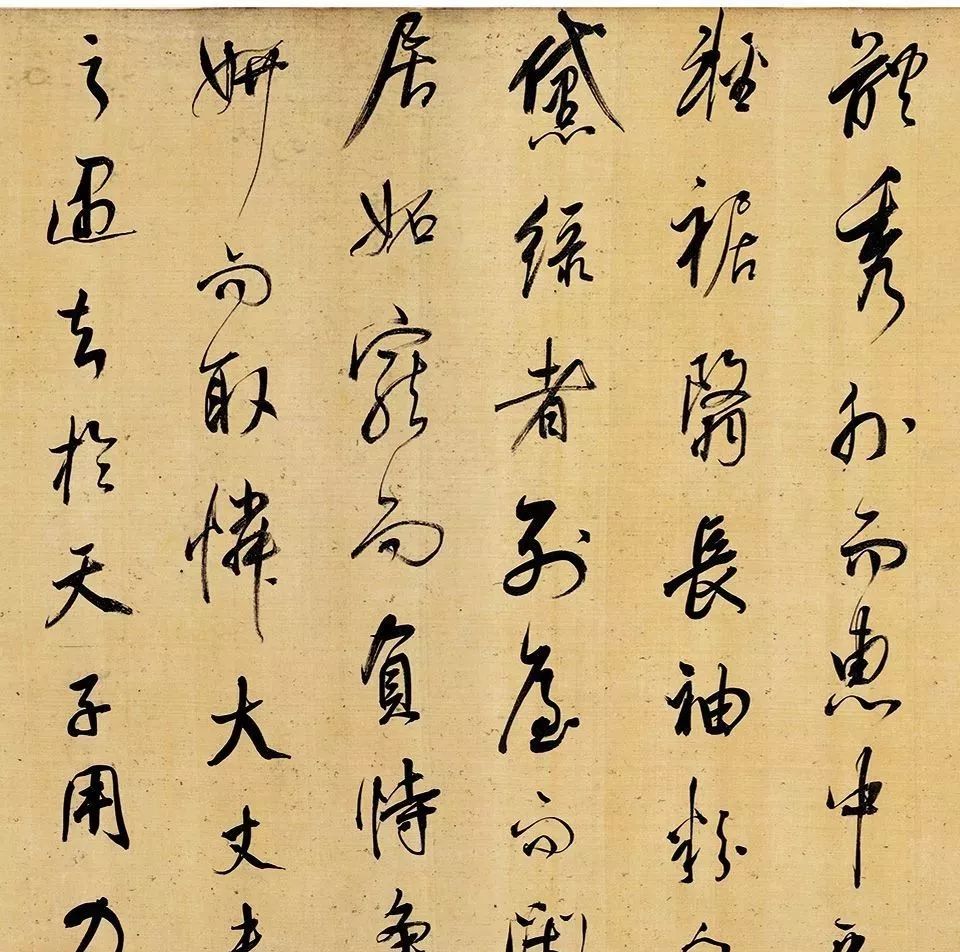 體秀外而惠中
輕裾翳長袖粉
黛綠者列屋而閒
居妬寵而負恃爭
妍而取憐大丈夫
之遇知於天子用力